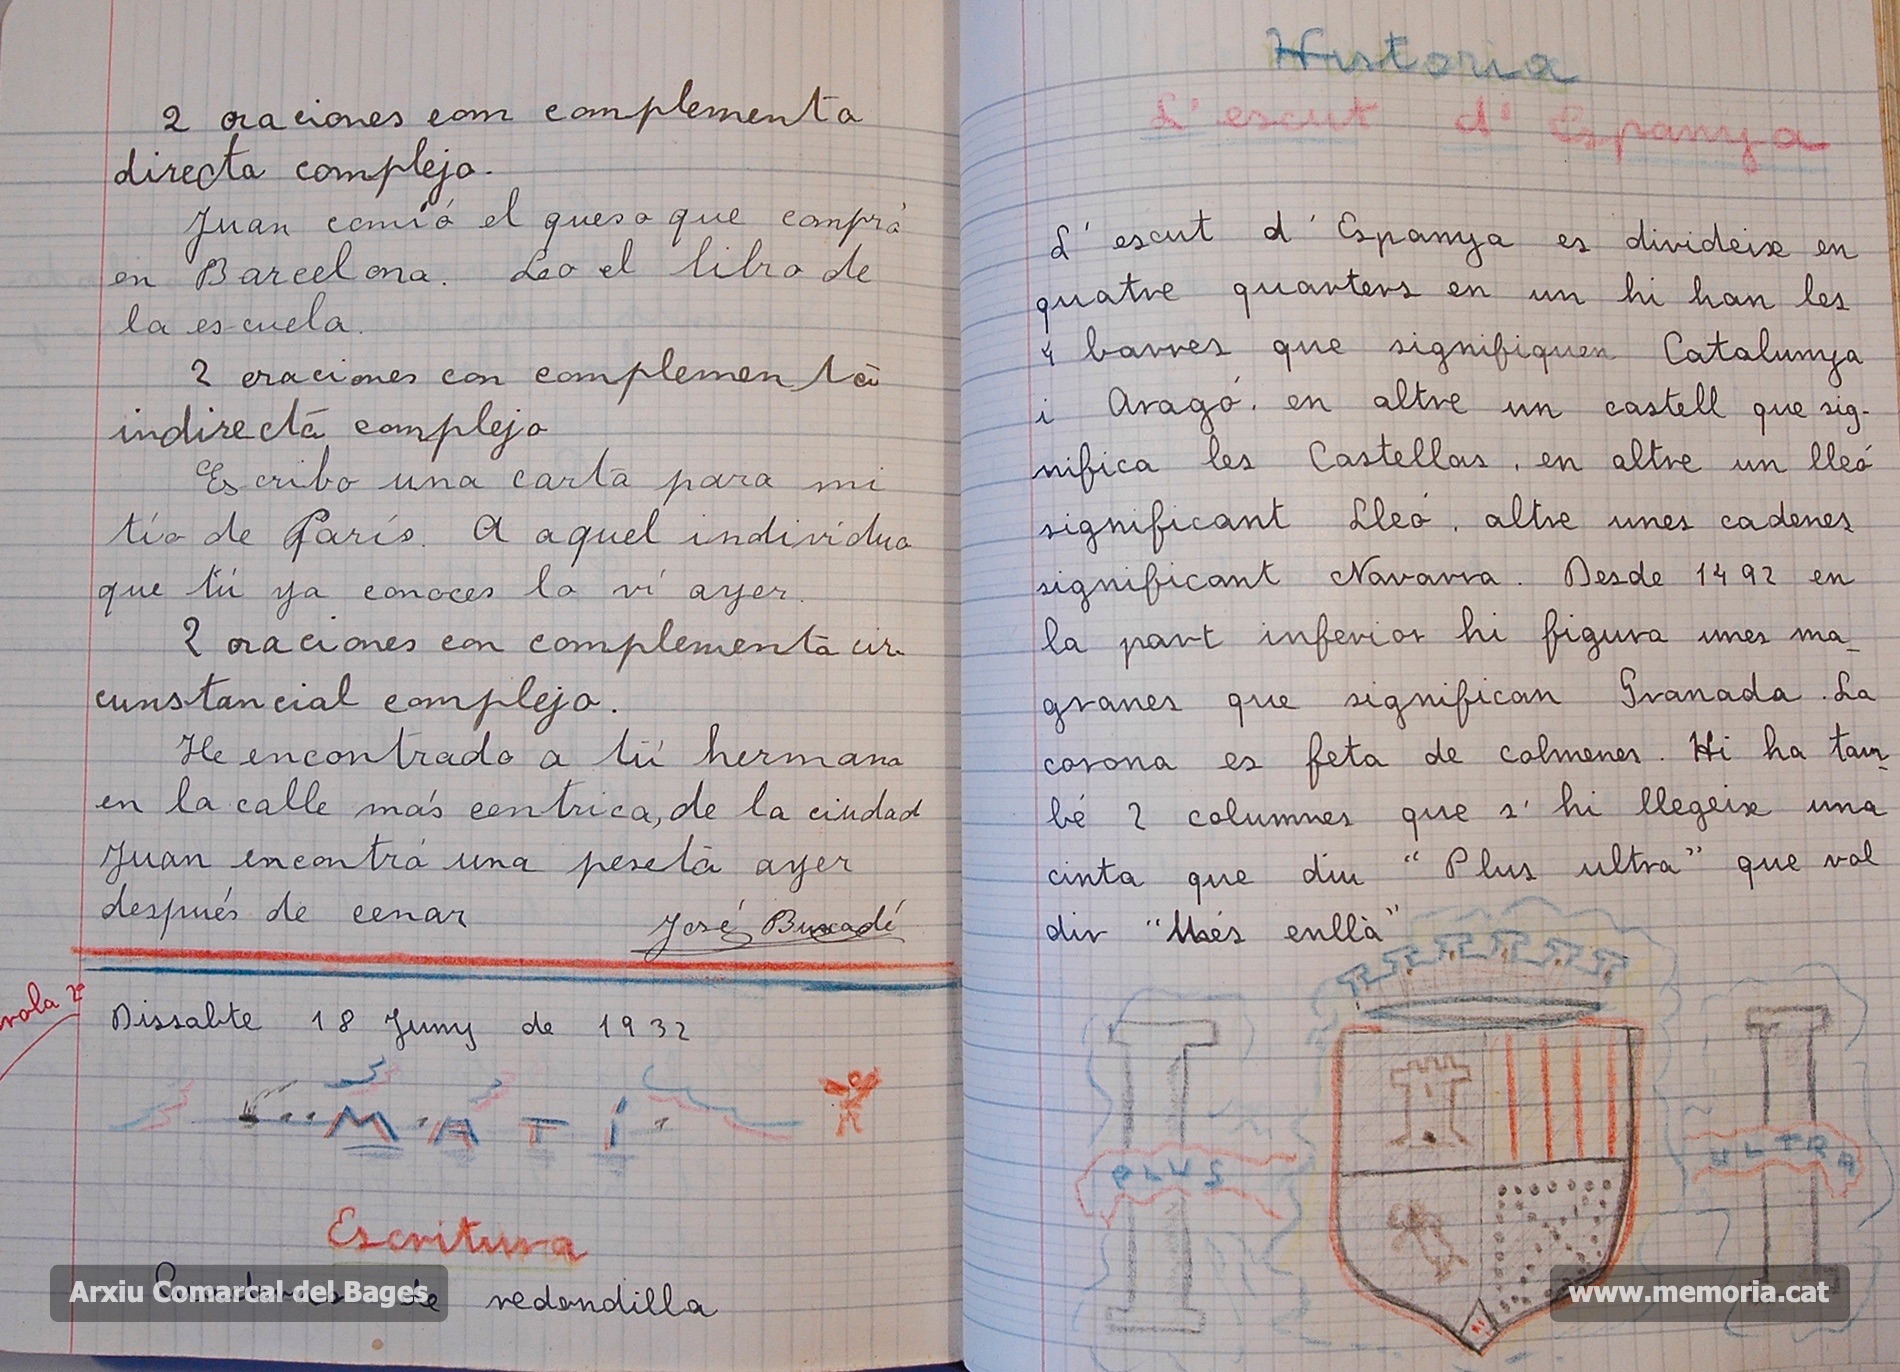 2 oraciones com complemento
directo complejo.
Juan comió el queso que compró
en Barcelona. Leo el libro de
la escuela.
2 oraciones con complemento
indirecto complejo
Escribo una carta para mi
tío de París. A aquel individuo
que tú ya conoces lo ví ayer.
2 oraciones con complemento cir-
cunstancial complejo.
He encontrado a tú hermano
en la calle más centrica, de la ciudad
Juan encontró una peseta ayer
después de cenar
José Buscadé
Dissabte 18 Juny de 1932
MATÍ
Escritura
de redondilla
Arxiu Comarcal del Bages
Historia
L'escut d'Espanya
L'escut d'Espanya es divideix en
quatre quarters en un hi han les
4 barres que signifiquen Catalunya
i Aragó. en altre un castell que sig-
nifica les Castellas, en altre un lleó
significant Lleó, altre unes cadenes
significant Navarra. Desde 1492 en
la part inferior hi figura unes ma-
granes que significan Granada. La
corona es feta de colmenes. Hi ha tam-
bé 2 columnes que s'hi llegeix una
cinta que diu "Plus ultra" que vol
dir "Més enllà"
PLUS
ULTRA
www.memoria.cat